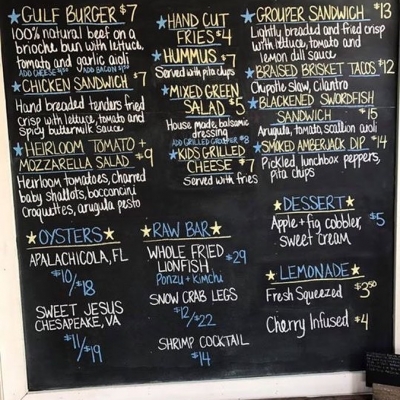 GULF BURGER $7
100% natural beef on a
brioche bun with lettuce,
tomato and garlic aioli
ADD CHEESE ADD BACON
CHICKEN SANDWICH $7
Hand breaded tenders fried
Crisp with lettuce, tomato and
spicy buttermilk sauce
HEIRLOOM TOMATO +
MOZZARELLA SALAD $9
Heirloom tomatoes, charred
baby shallots, bocconcini
Croquettes, arugula pesto
HAND CUT
FRIES $4
HUMMUS $7
Served with pita chips
MIXED GREEN
SALAD $5
House made balsamic
dressing
ADD GRILLED GROUPER $8
KIDS GRILLED
CHEESE $7
Served with fries
GROUPER SANDWICH $13
Lightly breaded and fried crisp
with lettuce, tomato and
lemon dill sauce
BRAISED BRISKET TACOS $12
Chipotle slaw, cilantro
BLACKENED SWORDFISH
SANDWICH $15
Arugula, tomato, scallion aioli
SMOKED AMBERJACK DIP $14
Pickled, lunchbox peppers,
pita chips
OYSTERS
APALACHICOLA, FL
$10/$18
SWEET JESUS
CHESAPEAKE, VA
$11/$19
RAW BAR
WHOLE FRIED
LIONFISH $29
Ponzu + kimchi
SNOW CRAB LEGS
$12/$22
SHRIMP COCKTAIL
$14
DESSERT
Apple + fig cobbler, $5
sweet cream
LEMONADE
Fresh Squeezed $3.50
Cherry Infused $4